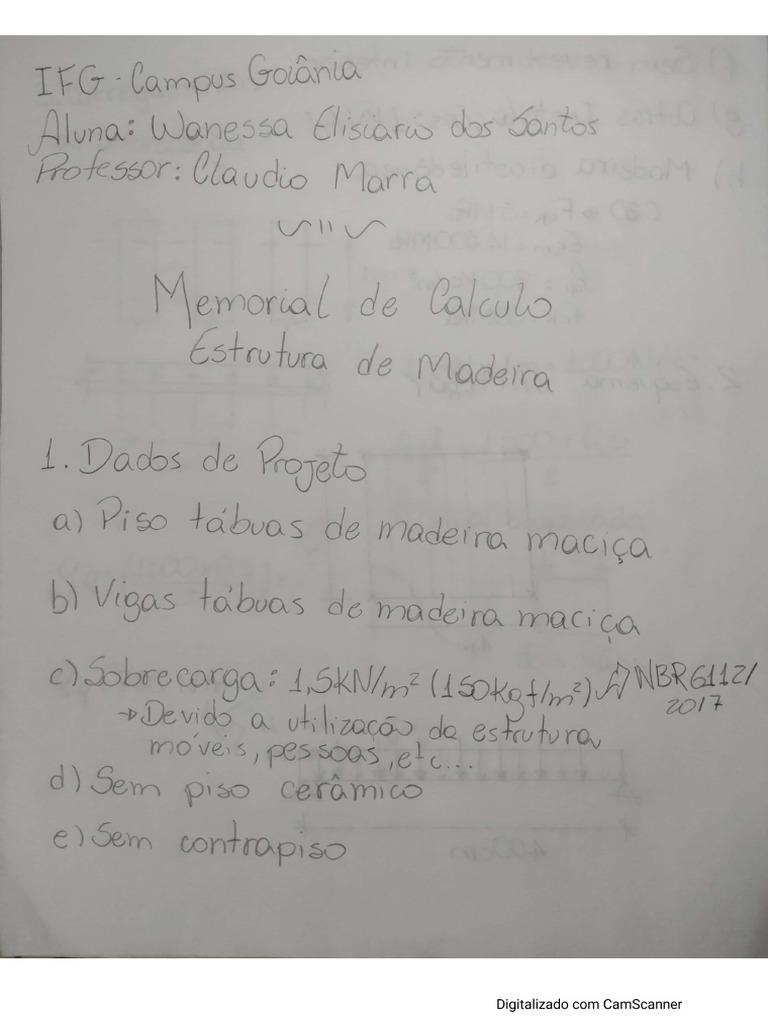 IFG - Campus Goiânia
Aluna: Wanessa Elisiario dos Santos
Professor: Claudio Marra
Memorial de Calculo
Estrutura de Madeira
1. Dados de Projeto
a) Piso tábuas de madeira maciça
b) Vigas tábuas de madeira maciça
c) Sobrecarga: 1,5kN/m² (150kgf/m²) NBR6112/
2017
→ Devido a utilização da estrutura,
móveis, pessoas, etc...
d) Sem piso cerâmico
e) Sem contrapiso
Digitalizado com CamScanner